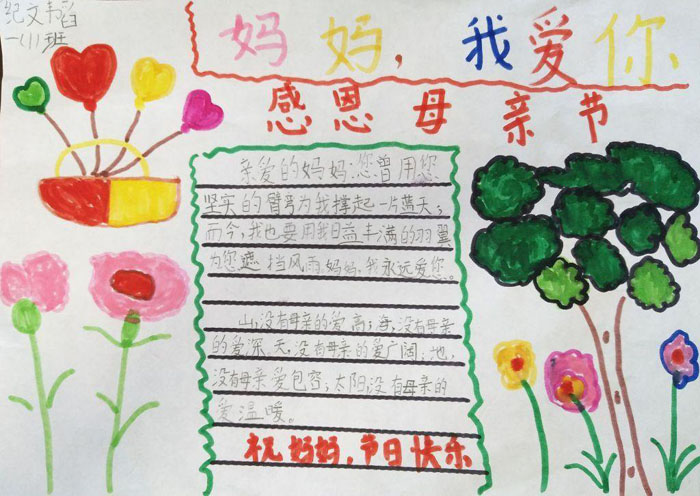 纪文韬
一(1)班
妈妈，我爱你
感恩母亲节
亲爱的妈妈:您曾用您
坚实的臂弯为我撑起一片蓝天;
而今,我也要用我日益丰满的羽翼
为您遮挡风雨.妈妈,我永远爱你。
山,没有母亲的爱高;海,没有母亲
的爱深,天,没有母亲的爱广阔;地,
没有母亲爱包容;太阳,没有母亲的
爱温暖。
祝妈妈,节日快乐